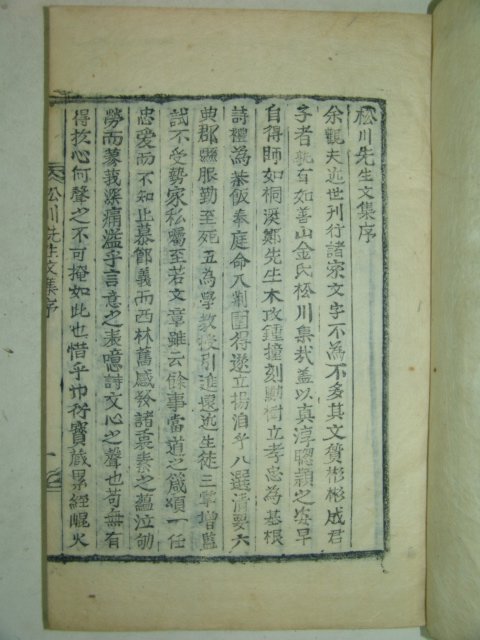 松川先生文集序
余觀夫近世刊行諸家文字不為不多其文質彬彬成君
子者孰有如善山金氏松川集哉蓋以真淳聰穎之姿早
自得師如桐溪鄭先生木攻鍾撞刻勵樹立孝忠為基根
詩禮為茶飯奉庭命入制圍得遂立揚洎乎八選清要六
典郡縣服勤至死五為學教授引進遠近生徒三掌增監
試不受勢家私屬至若文章雖云餘事當道之箴頌一任
忠愛而不知止慕節義而西林舊感發諸褱素之蘊泣劬
勞而蓼莪深痛溢乎言意之表噫詩文心之聲也苟無有
得於心何聲之不可掩如此也惜乎巾衍寶藏累經崐火
松川先生文集序 一